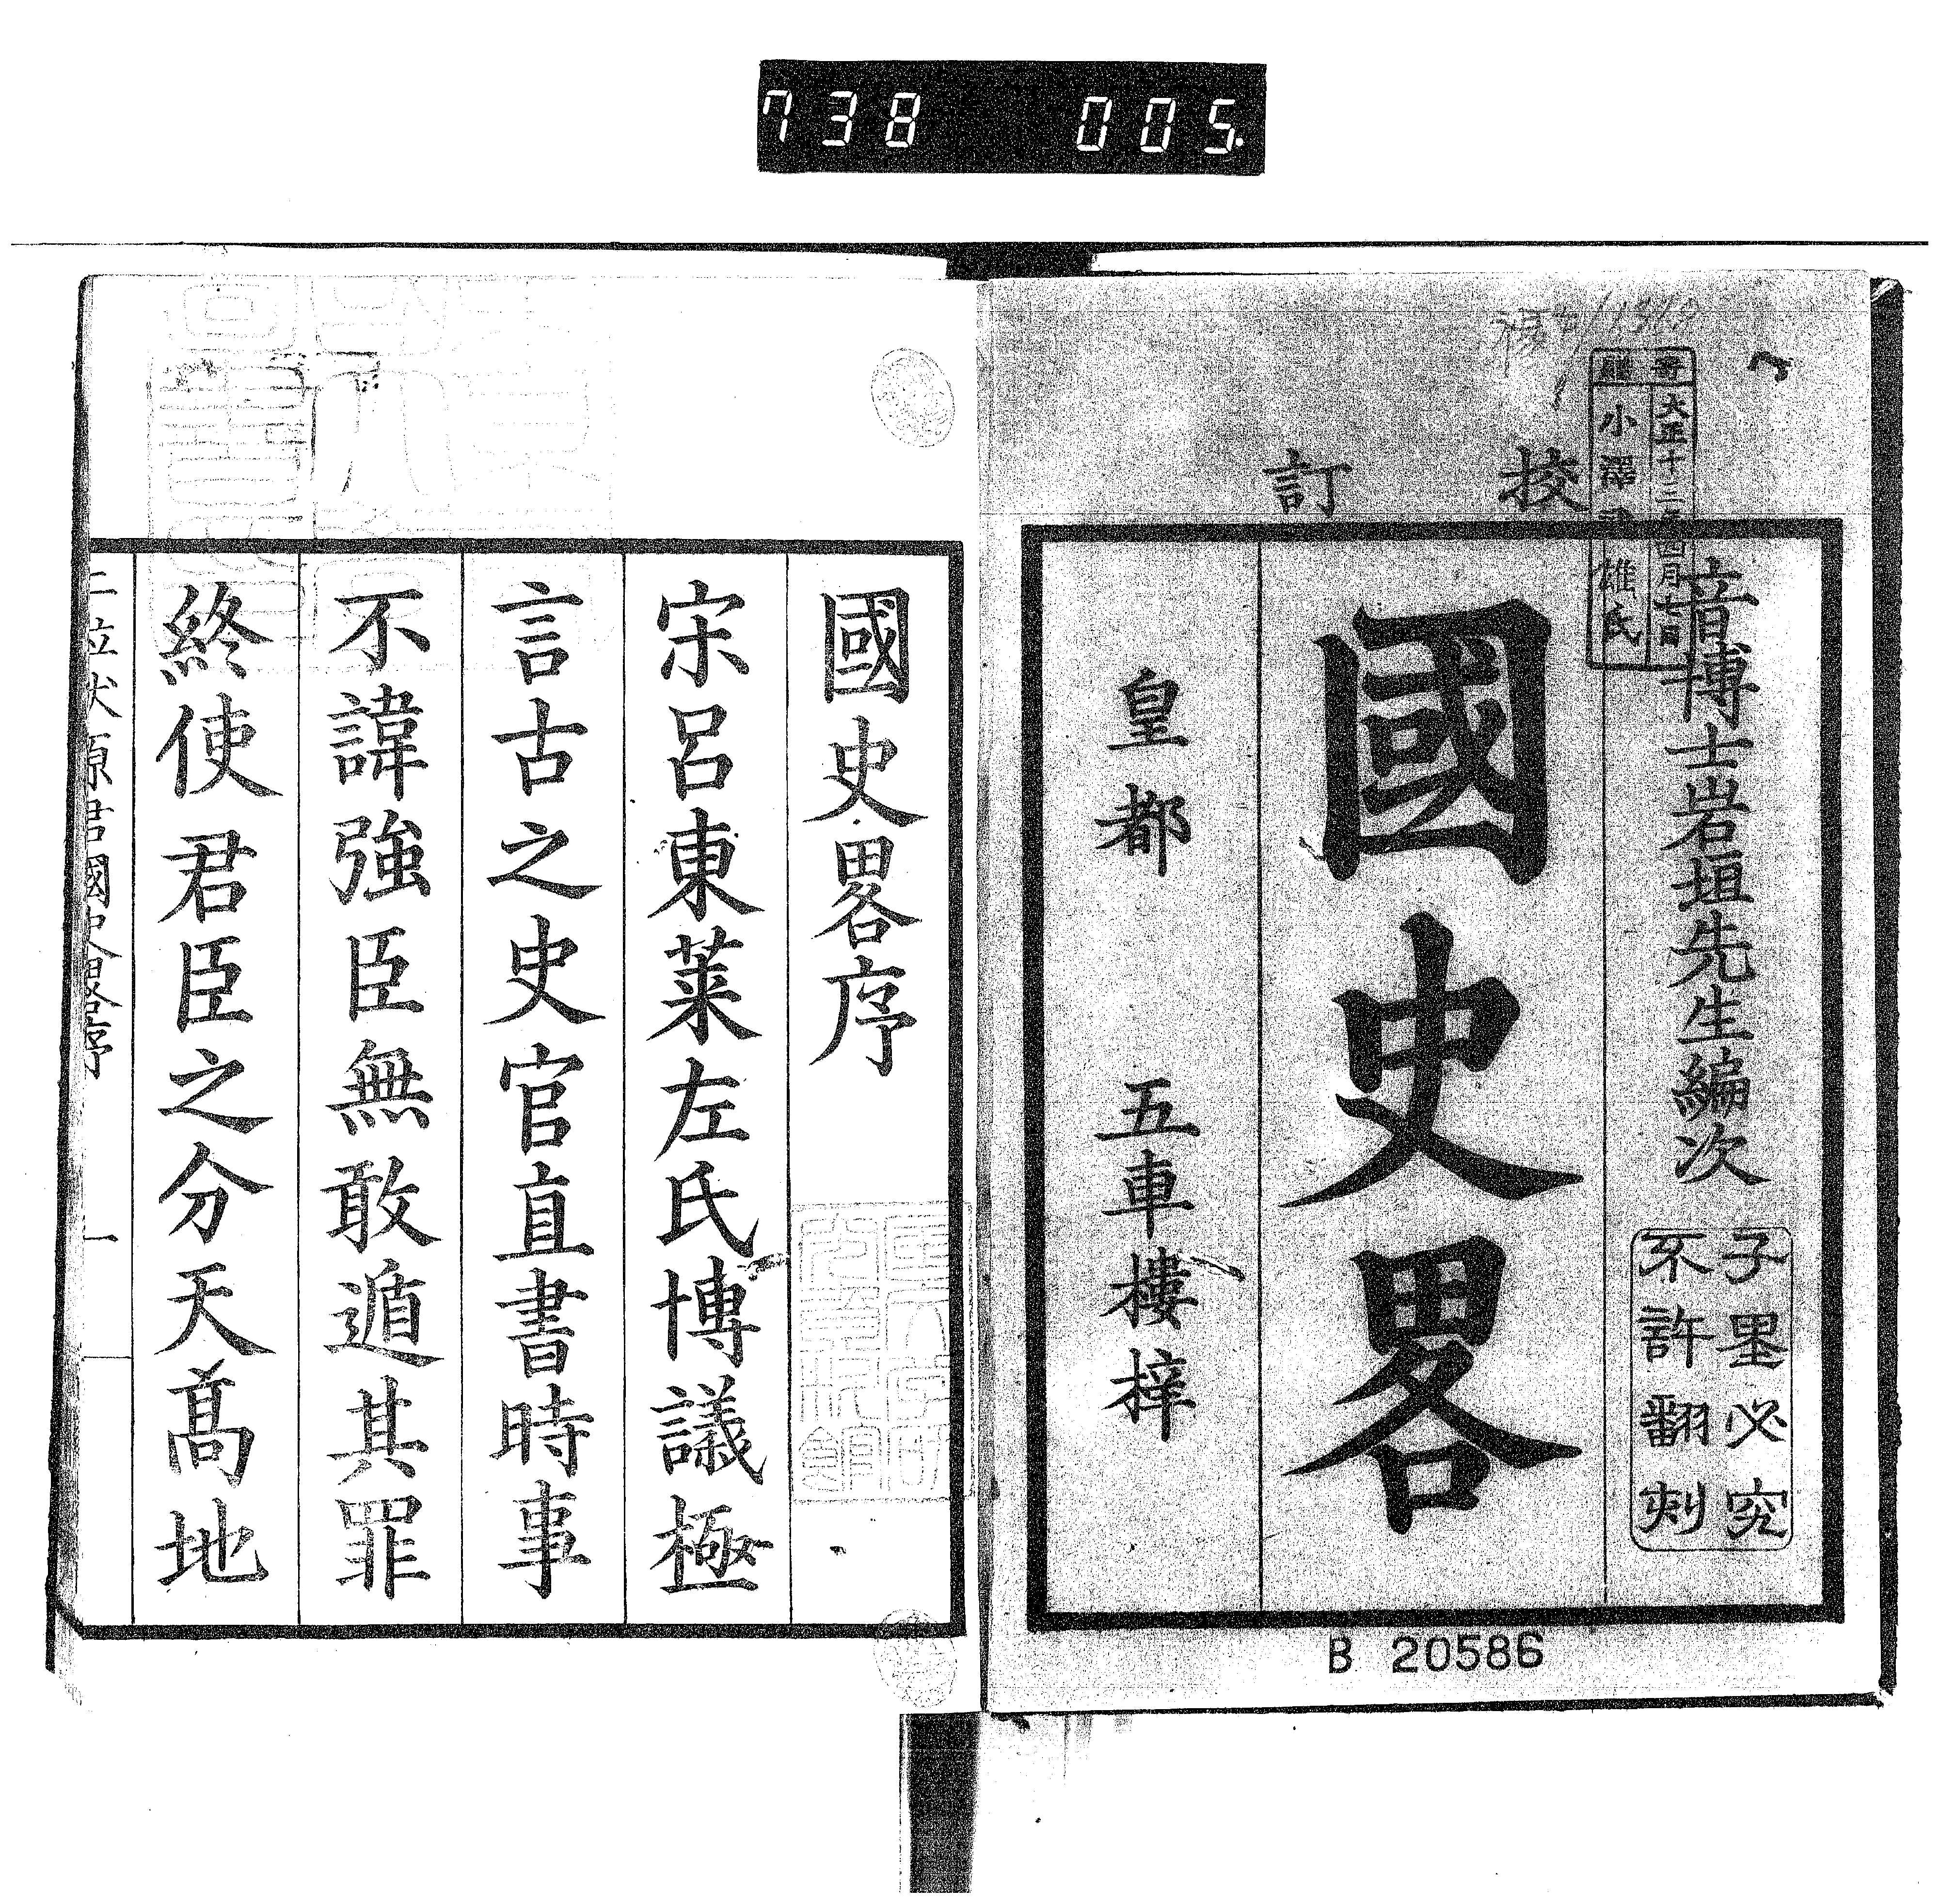 738 005.
挍訂
音博士岩垣先生編次
子墨必究
不許翻刻
國史畧
皇都 五車樓梓
大正十三年四月七日
小澤 雄氏
B 20586
國史畧序
宋呂東萊左氏博議極
言古之史官直書時事
不諱強臣無敢遁其罪
終使君臣之分天髙地
二位伏原君國史畧序 一